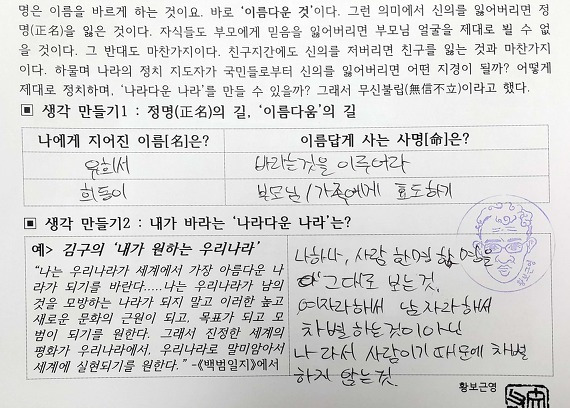 명은 이름을 바르게 하는 것이요. 바로 '이름다운 것'이다. 그런 의미에서 신의를 잃어버리면 정
명(正名)을 잃은 것이다. 자식들도 부모에게 믿음을 잃어버리면 부모님 얼굴을 제대로 뵐 수 없
을 것이다. 그 반대도 마찬가지이다. 친구지간에도 신의를 저버리면 친구를 잃는 것과 마찬가지
이다. 하물며 나라의 정치 지도자가 국민들로부터 신의를 잃어버리면 어떤 지경이 될까? 어떻게
제대로 정치하며, '나라다운 나라'를 만들 수 있을까? 그래서 무신불립(無信不立)이라고 했다.
▣ 생각 만들기1 : 정명(正名)의 길, '이름다움'의 길
나에게 지어진 이름[名]은?
이름답게 사는 사명[命]은?
유희서
바라는것을 이루어라
희동이
부모님/가족에게 효도하기
▣ 생각 만들기2 : 내가 바라는 '나라다운 나라'는?
예> 김구의 '내가 원하는 우리나라'
"나는 우리나라가 세계에서 가장 아름다운 나
라가 되기를 바란다.....나는 우리나라가 남의
것을 모방하는 나라가 되지 말고 이러한 높고
새로운 문화의 근원이 되고, 목표가 되고 모
범이 되기를 원한다. 그래서 진정한 세계의
평화가 우리나라에서, 우리나라로 말미암아서
세계에 실현되기를 원한다." -《백범일지》에서
나하나, 사람 한명 한 명을
그대로 보는것,
여자라해서 남자라해서
차별하는것이아닌
나라서 사람이기 때문에 차별
하지 않는것.
황보근영
황보근영